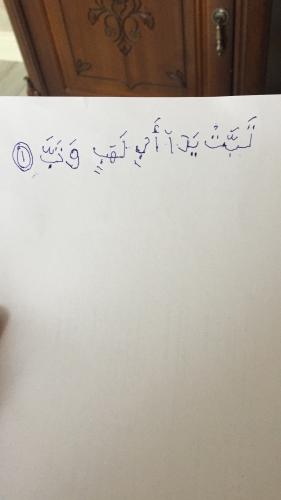 تَبَّتْ يَدَآ أَبِي لَهَبٍ وَتَبَّ ١